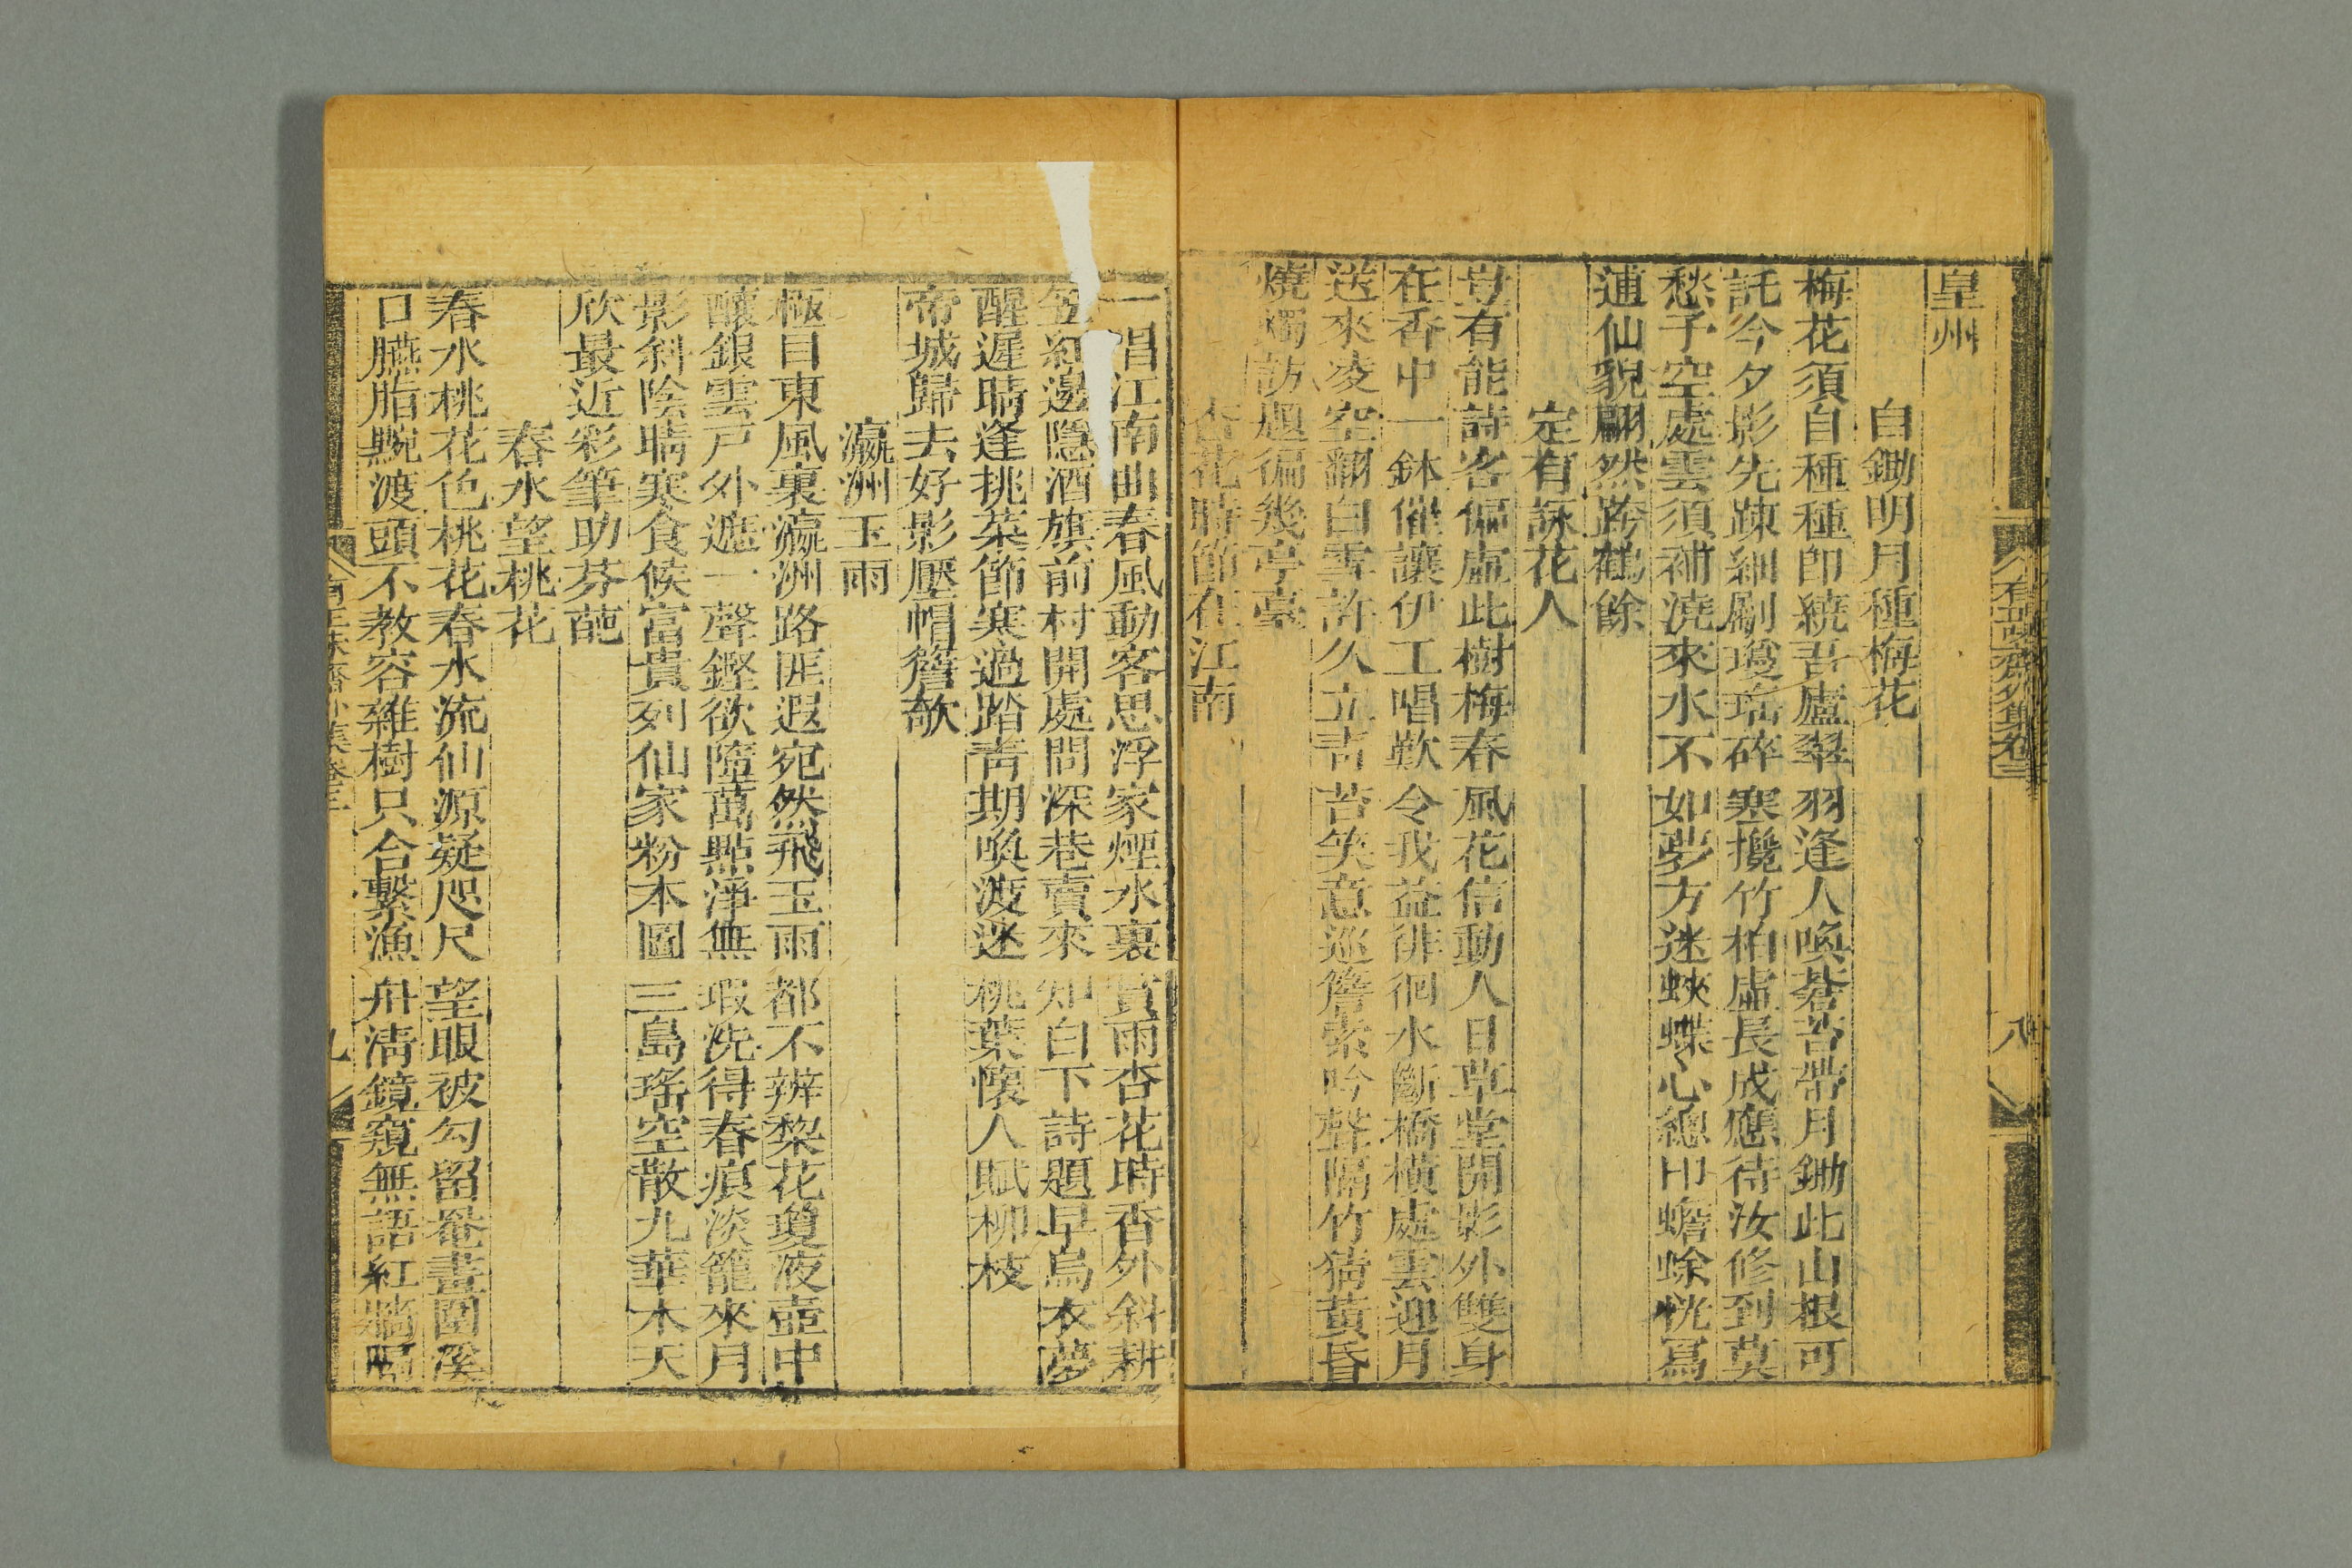 皇州
自鋤明月種梅花
梅花須自種種即繞吾廬翠羽逢人喚蒼苔帶月鋤此山根可
託今夕影先疎細斸瓊瑤碎寒攙竹柏虛長成應待汝修到莫
愁予空處雲須補澆來水不如夢方迷蛺蝶心總印蟾蜍恍爲
逋仙貌翩然跨鶴餘
定有詠花人
豈有能詩客偏虛此樹梅春風花信動人日草堂開影外雙身
在香中一鉢催讓伊工唱歎令我益徘徊水斷橋橫處雲迎月
送來凌空翻白雪許久立青苔笑意巡簷索吟聲隔竹猜黃昏
燒燭訪題徧幾亭臺
杏花時節在江南
有正味齋外集卷三
八
一唱江南曲春風動客思浮家煙水裏賣雨杏花時香外斜耕
笠紅邊隱酒旗前村開處問深巷賣來知白下詩題早烏衣夢
醒遲晴逢挑菜節寒過踏靑期喚渡迷桃葉懷人賦柳枝
帝城歸去好影壓帽簷欹
瀛洲玉雨
極目東風裏瀛洲路匪遐宛然飛玉雨都不辨棃花瓊液壺中
釀銀雲戸外遮一聲鏗欲墮萬點淨無瑕洗得春痕淡籠來月
影斜陰晴寒食候富貴列仙家粉本圖三島瑤空散九華木天
欣最近彩筆助芬葩
春水望桃花
春水桃花色桃花春水流仙源疑咫尺望眼被勾留罨畫圍溪
口臙脂黦渡頭不教容雜樹只合繫漁舟淸鏡窺無語紅牆
有正味齋外集卷三
九